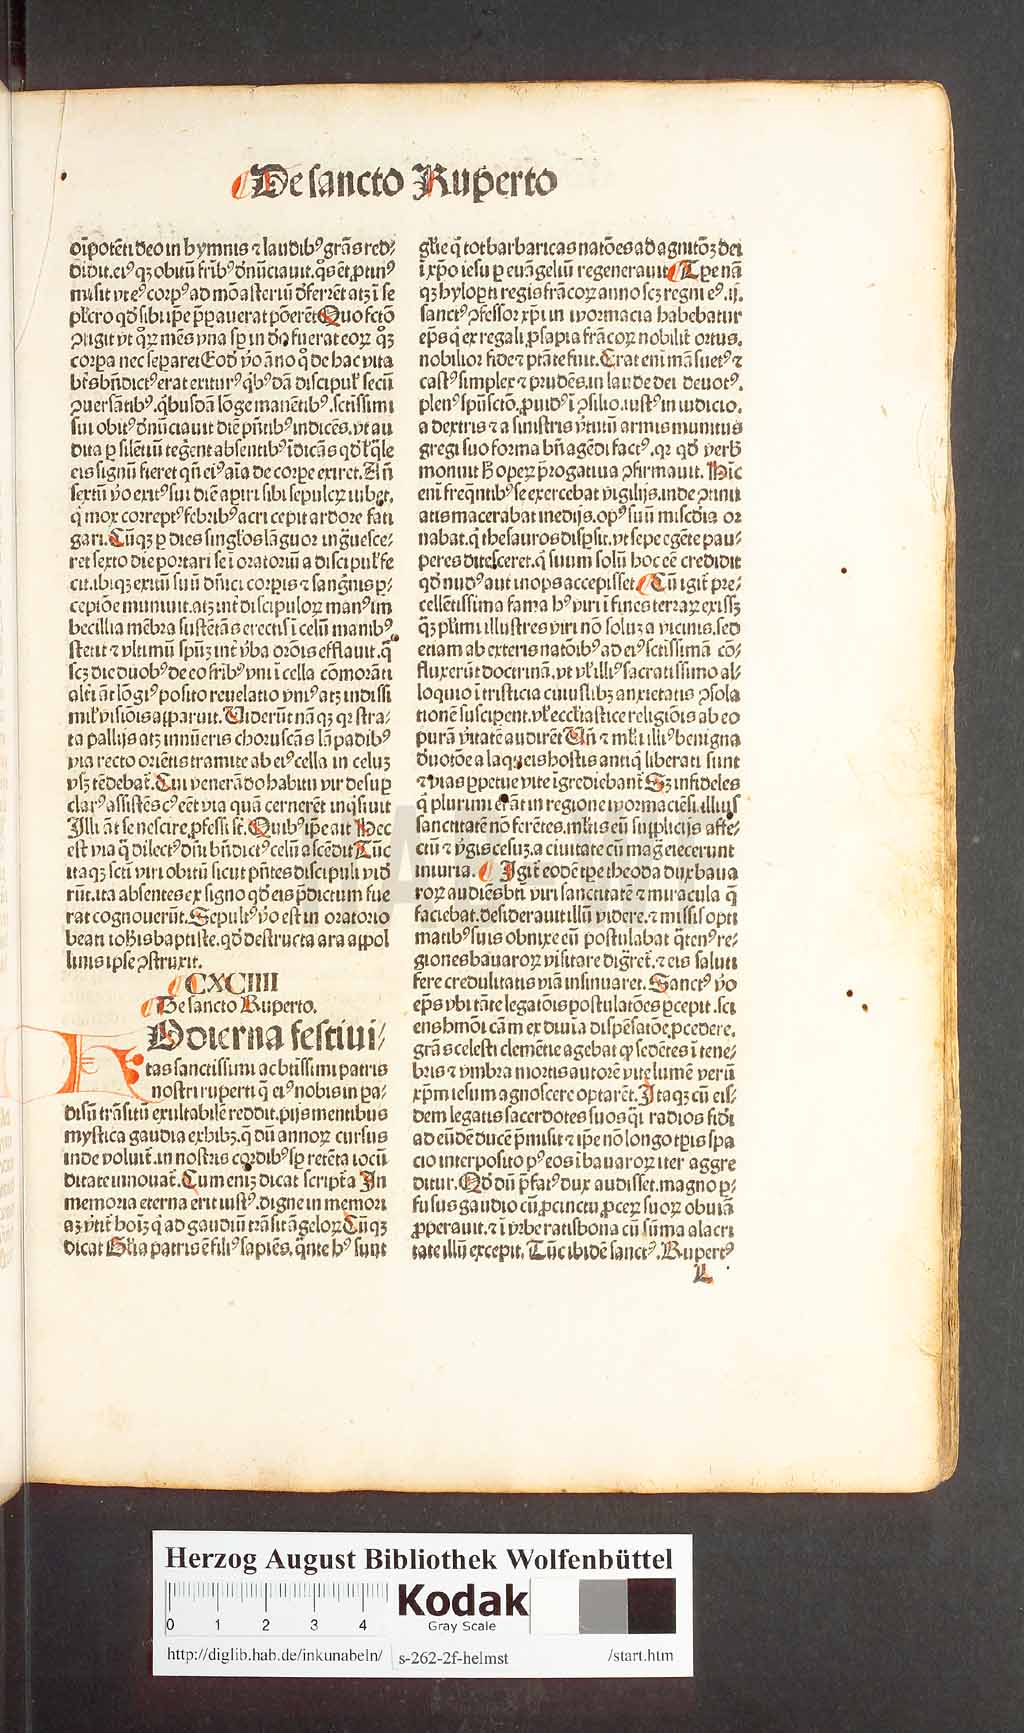 De sancto Ruperto
oīpotēti deo in hymnis ⁊ laudibꝰ grās red/
didit. eiꝰ qꝫ obitū frībꝰ dn̄unciauit. q̊s ēt ꝓtinꝰ
misit vt eꝰ corpꝰ ad mōasteriū dn̄ferrēt atqꝫ ī se
plcro qd̄ sibi ip̄e p̄pauerat pōerēt Quo fctō
ꝯtigit vt qꝝ mēs vna sꝑ in dn̄o fuerat eoꝝ qꝫ
corpa nec separet Eod̄ v̄o āno q̊ de hac vita
bt̄s bn̄dictꝰ erat exiturꝰ qb̓ꝰ dā discipul̓ secū
ꝯuersātibꝰ. qbusdā lōge manētibꝰ. sctissimi
sui obitꝰ dn̄unciauit diē pn̄tibꝰ indicēs. vt au
dita ꝑ silētiū tegerent absentibꝰ īdicās qd̄ l̓ qle
eis signū fieret qn̄ eiꝰ aīa de corpe exiret. An̄
sextū v̄o exitꝰ sui diē apiri sibi sepulcꝝ iubet.
q̄ mox correptꝰ febribꝰ acri cepit ardore fati
gari. Cūqꝫ ꝑ dies singl̓os lāguor ingͣuesce/
ret sexto die portari se ī oratoriū a discipul̓ fe
cit. ibiqꝫ exitū suū dn̄ici corpis ⁊ sangn̄is ꝑ/
ceptiōe muniuit. atqꝫ int̄ discipuloꝝ manꝰ im
becillia mēbra sustētās erectis ī celū manibꝰ
stetit ⁊ vltimū spūꝫ int̄ v̓ba orōis efflauit. qͣ
scꝫ die duobꝰ de eo frībꝰ vni ī cella cōmorāti
alt̓i āt lōgiꝰ posito reuelatio vniꝰ atqꝫ indissi
mil̓ visiōis apparuit. Viderūt nāqꝫ qꝫ stra/
ta pallijs atqꝫ innūeris choruscās lāpadibꝰ
via recto oriētis tramite ab eiꝰ cella in celuꝫ
vsqꝫ tēdebat. Cui venerādo habitu vir desuꝑ
clarꝰ assistēs cꝰ eēt via quā cernerēt inq̄siuit
Illi āt se nescire ꝓfessi st̄. Quibꝰ ip̄e ait Hec
est via q̄ dilectꝰ dn̄i bn̄dictꝰ celū ascēdit Tūc
itaqꝫ scti viri obitū sicut pn̄tes discipuli vid̄
rūt. ita absentes ex signo qd̄ eis p̄dictum fue
rat cognouerūt. Sepultꝰ v̄o est in oratorio
beati ioh̓is baptiste. qd̄ destructa ara appol
linis ipse ꝯstruxit.
CXCIIII
De sancto Ruperto.
HOdierna festiui/
tas sanctissimi ac btissimi patris
nostri ruperti q̄ eiꝰ nobis in pa/
disū trāsitū exultabilē reddit. pijs mentibus
mystica gaudia exhibꝫ. q̄ dū annoꝝ cursus
inde voluit̄. in nostris cordibꝰ sꝑ retēta iocū
ditate innouat̄. Cum eniꝫ dicat scriptā In
memoria eterna erit iustꝰ. digne in memori
aꝫ v̓tit̄ hoīꝫ q̄ ad gaudiū trāsit āgeloꝝ Cūqꝫ
dicat Gl̓ia patris ē filiꝰ sapiēs. q̄nte hꝰ sunt
gl̓ie q̄ tot barbaricas natōes ad agnitōꝫ dei
ī xp̄o iesu ꝑ euāgeliū regenerauit Tꝑe nā
qꝫ hylopti regis frācoꝝ anno scꝫ regni eꝰ .ij.
sanctꝰ ꝯfessor xp̄i in wormacia habebatur
ep̄s q̄ ex regali ꝓsapia frācoꝝ nobilit̄ ortus.
nobilior fide ⁊ ptāte fuit. Erat enī māsuetꝰ ⁊
castꝰ simplex ⁊ prudēs. in laude dei deuotꝰ.
plenꝰ spūsctō. ꝓuidꝰ ī ꝯsilio. iustꝰ in iudicio.
a dextris ⁊ a sinistris v̓tutū armis munitus
gregi suo forma bn̄ agēdi factꝰ. qꝛ qd̄ verb̄
monuit h̄ opeꝝ p̄rogatiua ꝯfirmauit. Hīc
enī freq̄ntibꝰ se exercebat vigilijs. inde ꝯtinu
atis macerabat inedijs. opꝰ suū misc̄dia or
nabat. q̄ thesauros disꝑsit. vt sepe egēte pau/
peres ditesceret. q̄ suum solū hoc eē credidit
qd̄ nudꝰ aut inops accepisset Cū igit̄ pre/
cellētissima fama hꝰ viri ī fines terraꝝ exissꝫ
qͣꝫ pl̓imi illustres viri nō soluꝫ a vicinis. sed
etiam ab exteris natōibꝰ ad eiꝰ sctissimā cō/
fluxerūt doctrinā. vt vl̓ illiꝰ sacratissimo al/
loquio ī tristicia cuiuslibꝫ anxietatis ꝯsola
tionē susciperēt. vl̓ eccl̓iastice religiōis ab eo
purā v̓itatē audirēt Vn̄ ⁊ ml̓ti illiꝰ benigna
dn̄otōe a laqueis hostis antiq̄ liberati sunt
⁊ vias ꝑpetue vite īgrediebant̄ Sꝫ infideles
q̄ plurimi erāt in regione wormaciēsi. illius
sanctitatē nō ferētes. ml̓tis eū supplicijs affe/
ctū ⁊ v̓gis cesuꝫ. a ciuitate cū magͣ eiecerunt
iniuria. Igit̄ eodē tꝑe theoda dux baua
roꝝ audiēs bti viri sanctitatē ⁊ miracula q̄
faciebat. desiderauit illū videre. ⁊ missis opti
matibꝰ suis obnixe eū postulabat q̄tenꝰ re/
giones bauaroꝝ visitare digret̄. ⁊ eis saluti
fere credulitatis viā insinuaret. Sanctꝰ v̄o
ep̄s vbi tāte legatōis postulatōes ꝑcepit. sci
ens hm̄oi cām ex diuīa dispēsatiōe ꝓcedere.
grās celesti clemētie agebat qꝫ sedētes ī tene/
bris ⁊ vmbra mortis autorē vite lumē verū
xp̄m iesum agnoscere optarēt. Itaqꝫ cū eis/
dem legatis sacerdotes suos q̄i radios fidi
ad eūdē ducē p̄misit ⁊ ip̄e nō longo tꝑis spa
cio interposito pꝰ eos ī bauaroꝝ iter aggre
ditur. Qd̄ dū p̄fatꝰ dux audisset. magno ꝑ/
fusus gaudio cū ꝓcinctu ꝓceꝝ suoꝝ obuiā
ꝓperauit. ⁊ ī vrbe ratisbona cū sūma alacri
tate illū excepit. Tūc ibidē sanctꝰ. Rupertꝰ
L
Herzog August Bibliothek Wolfenbüttel
0 1 2 3 4
Kodak
Gray Scale
http://diglib.hab.de/inkunabeln/ s-262-2f-helmst /start.htm